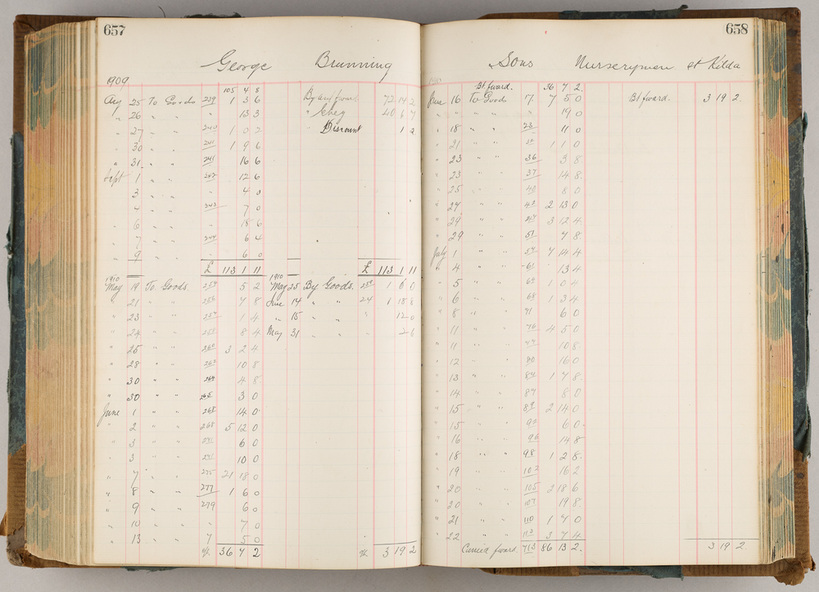 657
George Brunning
1909
105 4 8
Aug 25 To Goods 239 1 3 6 By
" 26 " " 13 3 " Chq
" 27 " " 240 1 0 2 " Discount
" 30 " " 241 1 9 6
" 31 " " 241 16 6
Sept 1 " " 242 12 6
" 3 " " 4 0
" 4 " " 243 7 0
" 6 " " 18 6
" 7 " " 244 6 6
" 9 " " 6 0
£ 113 1 11 £ 113 1 11
1910 1910
May 19 To Goods 5 2 May 25 By Goods 1 6 0
" 21 " " 7 8 June 14 " " 24 1 18 8
" 23 " " 1 4 " 15 " " 12 0
" 24 " " 8 4 May 31 " " 2 6
" 25 " " 3 2 4
" 28 " " 10 8
" 30 " " 4 8
" 30 " " 3 0
June 1 " " 268 14 0
" 2 " " 268 5 12 0
" 3 " " 6 0
" 3 " " 10 0
" 7 " " 275 21 18 0
" 8 " " 277 1 6 0
" 9 " " 279 6 0
" 10 " " 7 0
" 13 " " 7 5 0
36 7 2 3 19 2
658
Sons Nurserymen St Kilda
1910
Bt fward. 36 7 2
June 16 To Goods 7 7 5 0 Bt fward. 3 19 2
" " 19 0
" 18 " " 23 11 0
" 21 " " 1 1 0
" 23 " " 36 3 8
" 23 " " 37 14 8
" 25 " " 8 0
" 27 " " 43 2 13 0
" 29 " " 3 12 4
" 29 " " 7 8
July 1 " " 7 4 4
" 4 " " 61 13 4
" 5 " " 1 0 4
" 6 " " 68 1 3 4
" 8 " " 71 6 0
" 11 " " 76 4 5 0
" 11 " " 10 8
" 12 " " 80 16 0
" 13 " " 84 1 7 8
" 14 " " 87 8 0
" 15 " " 2 14 0
" 15 " " 6 0
" 16 " " 14 8
" 18 " " 98 1 2 8
" 19 " " 102 16 2
" 20 " " 105 2 18 6
" 20 " " 19 8
" 21 " " 110 1 7 0
" 22 " " 113 3 7 4
Carried fward. 713 86 13 2 3 19 2